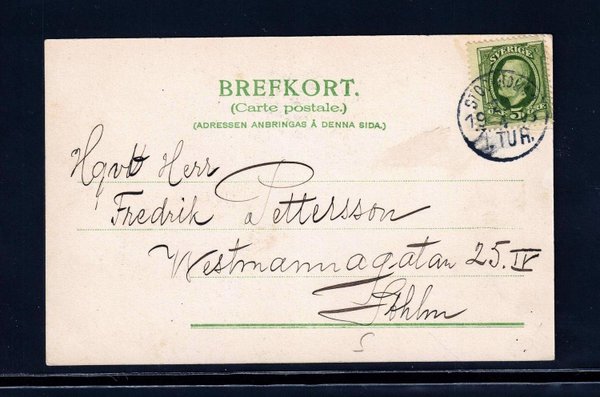 BREFKORT.
(Carte postale.)
(ADRESSEN ANBRINGAS Å DENNA SIDA.)
SVERIGE
1. TUR.
Hqvb Herr
Fredrik Pettersson
Westmannagatan 25. IV
Sthlm